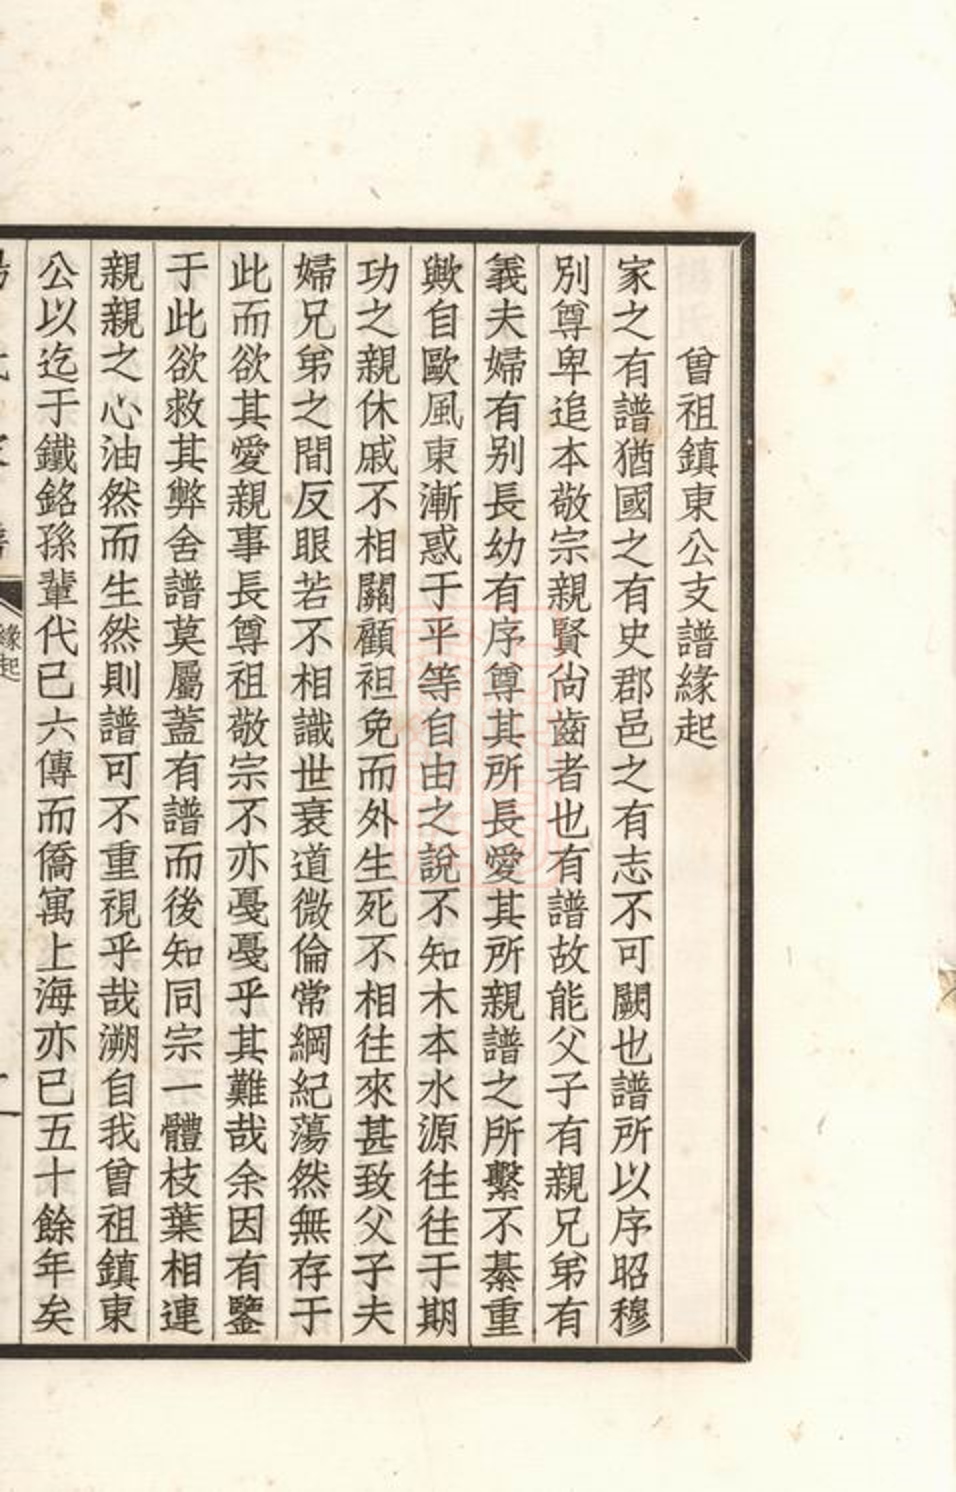 曾祖鎮東公支譜緣起
家之有譜猶國之有史郡邑之有志不可闕也譜所以序昭穆
別尊卑追本敬宗親賢尙齒者也有譜故能父子有親兄弟有
義夫婦有別長幼有序尊其所長愛其所親譜之所繫不綦重
歟自歐風東漸惑于平等自由之說不知木本水源往往于期
功之親休戚不相關顧袒免而外生死不相往來甚致父子夫
婦兄弟之間反眼若不相識世衰道微倫常綱紀蕩然無存于
此而欲其愛親事長尊祖敬宗不亦戞戞乎其難哉余因有鑒
于此欲救其弊舍譜莫屬蓋有譜而後知同宗一體枝葉相連
親親之心油然而生然則譜可不重視乎哉溯自我曾祖鎮東
公以迄于鐵銘孫輩代已六傳而僑寓上海亦已五十餘年矣
緣起